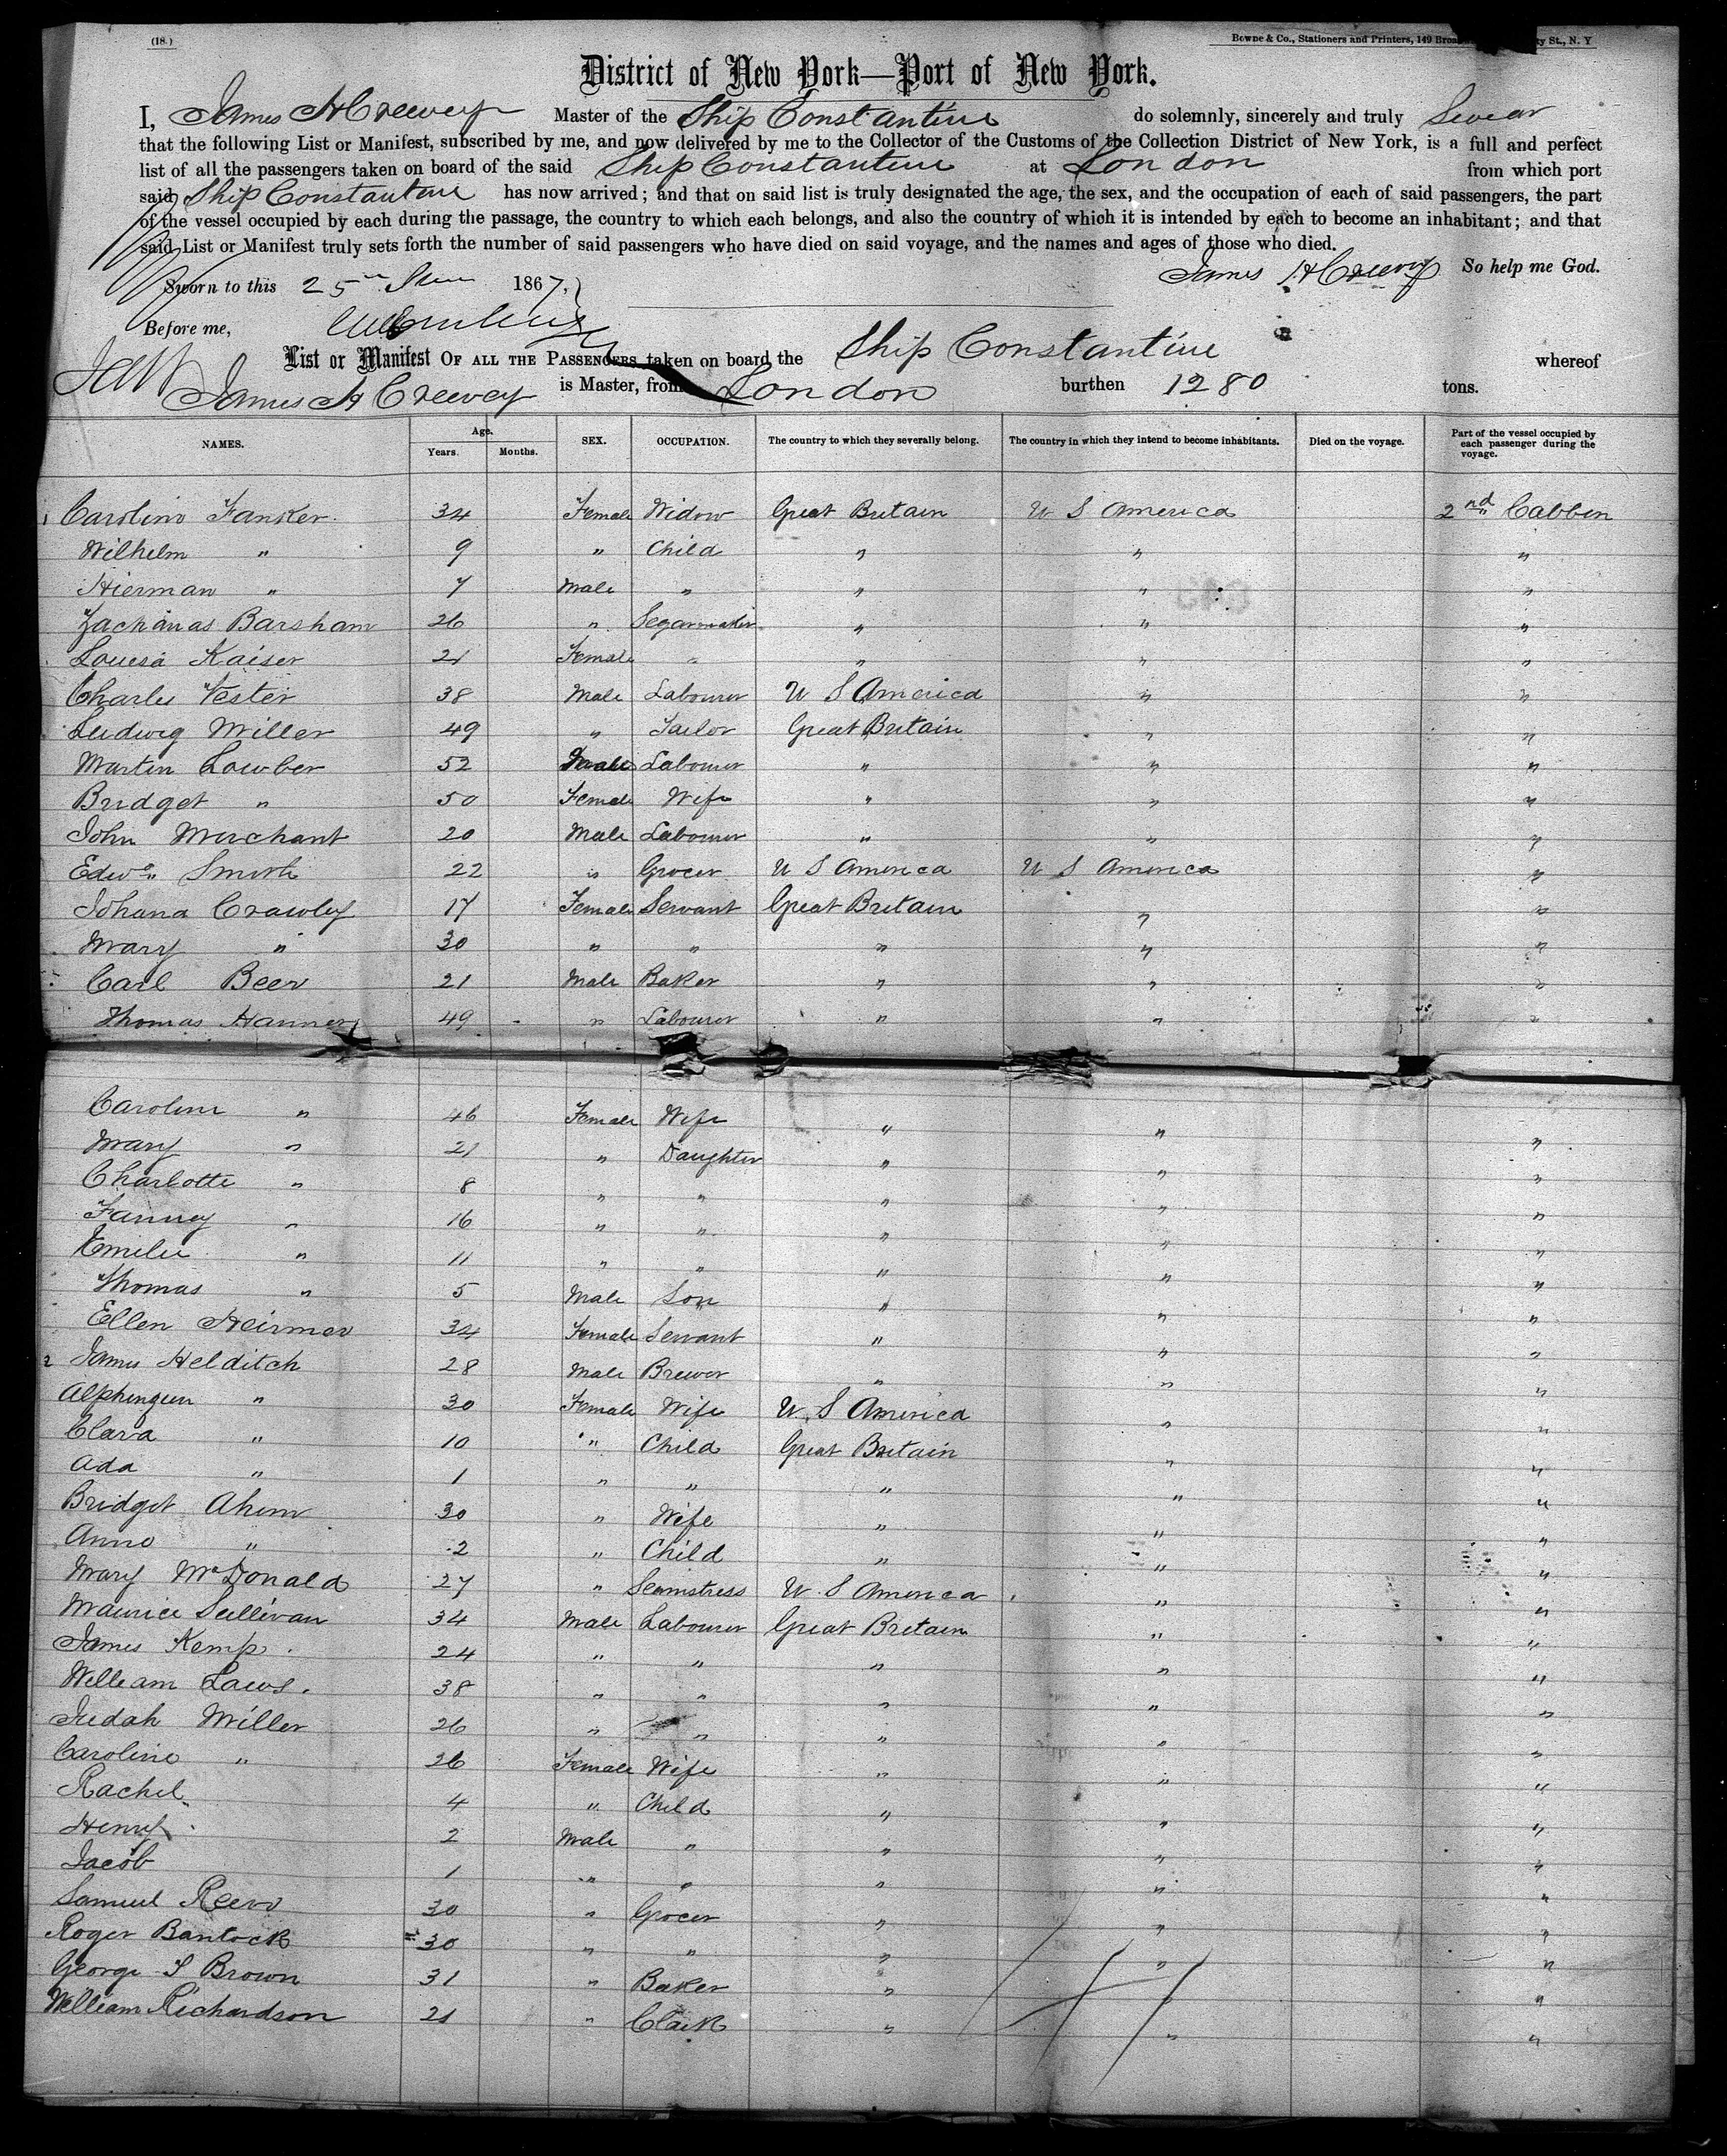 (18.)
Bowne & Co., Stationers and Printers, 149 St., N. Y
District of New York—Port of New York.
I, James H Creevey Master of the Ship Constantine do solemnly, sincerely and truly Swear
that the following List or Manifest, subscribed by me, and now delivered by me to the Collector of the Customs of the Collection District of New York, is a full and perfect
list of all the passengers taken on board of the said Ship Constantine at London from which port
said Ship Constantine has now arrived; and that on said list is truly designated the age, the sex, and the occupation of each of said passengers, the part
of the vessel occupied by each during the passage, the country to which each belongs, and also the country of which it is intended by each to become an inhabitant; and that
said List or Manifest truly sets forth the number of said passengers who have died on said voyage, and the names and ages of those who died.
James H Creevey So help me God.
Sworn to this 25 1867,
Before me,
List or Manifest OF ALL THE PASSENGERS taken on board the Ship Constantine whereof
James H Creevey is Master, from London burthen 1280 tons.
NAMES. Age. Years. Months. SEX. OCCUPATION. The country to which they severally belong. The country in which they intend to become inhabitants. Died on the voyage. Part of the vessel occupied by each passenger during the voyage.
1 Caroline Fanker 34 Female Widow Great Britain U S America 2nd Cabben
Wilhelm " 9 " Child " " "
Hierman " 7 Male " " " "
Zacharias Barsham 26 " Segarmaker " " "
Louesa Kaiser 21 Female " " " "
Charles Vester 38 Male Labourer U S America " "
Ludwig Miller 49 " Tailor Great Britain " "
Martin Lowber 52 Male Labourer " " "
Bridget " 50 Female Wife " " "
John Merchant 20 Male Labourer " " "
Edwd Smith 22 " Grocer U S America U S America "
Johana Crawley 17 Female Servant Great Britain " "
Mary " 30 " " " " "
Carl Beer 21 Male Baker " " "
Thomas Hanner 49 " Labourer " " "
Caroline " 46 Female Wife " " "
Mary " 21 " Daughter " " "
Charlotte " 8 " " " " "
Fanney " 16 " " " " "
Emilie " 11 " " " " "
Thomas " 5 Male Son " " "
Ellen Heirmer 34 Female Servant " " "
2 James Helditch 28 Male Brewer " " "
" 30 Female Wife U. S America " "
Clara " 10 " Child Great Britain " "
Ada " 1 " " " " "
Bridget Ahern 30 " Wife " " "
Anne " 2 " Child " " "
Mary McDonald 27 " Seamstress U. S America " "
Maurice Sullivan 34 Male Labourer Great Britain " "
James Kemp 24 " " " " "
William Laws. 38 " " " " "
Judah Miller 26 " " " " "
Caroline " 26 Female Wife " " "
Rachel 4 " Child " " "
Henry 2 Male " " " "
Jacob 1 " " " " "
Samuel Reeve 30 " Grocer " " "
Roger Bantock 30 " " " " "
George S Brown 31 " Baker " " "
William Richardson 21 " Clark " " "